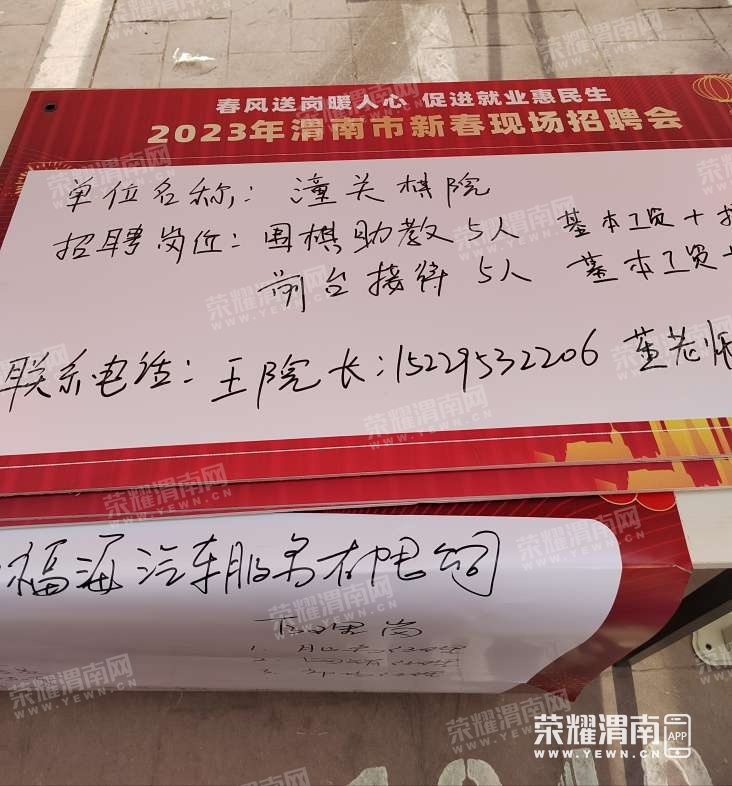 春风送岗暖人心 促进就业惠民生
2023年渭南市新春现场招聘会
单位名称：潼关棋院
招聘岗位：围棋助教 5人 基本工资+
前台接待 5人 基本工资+
联系电话：王院长：15229532206 董老师
福海汽车服务有限公司
荣耀渭南网
WWW.YEWN.CN
荣耀渭南 APP
WWW.YEWN.CN